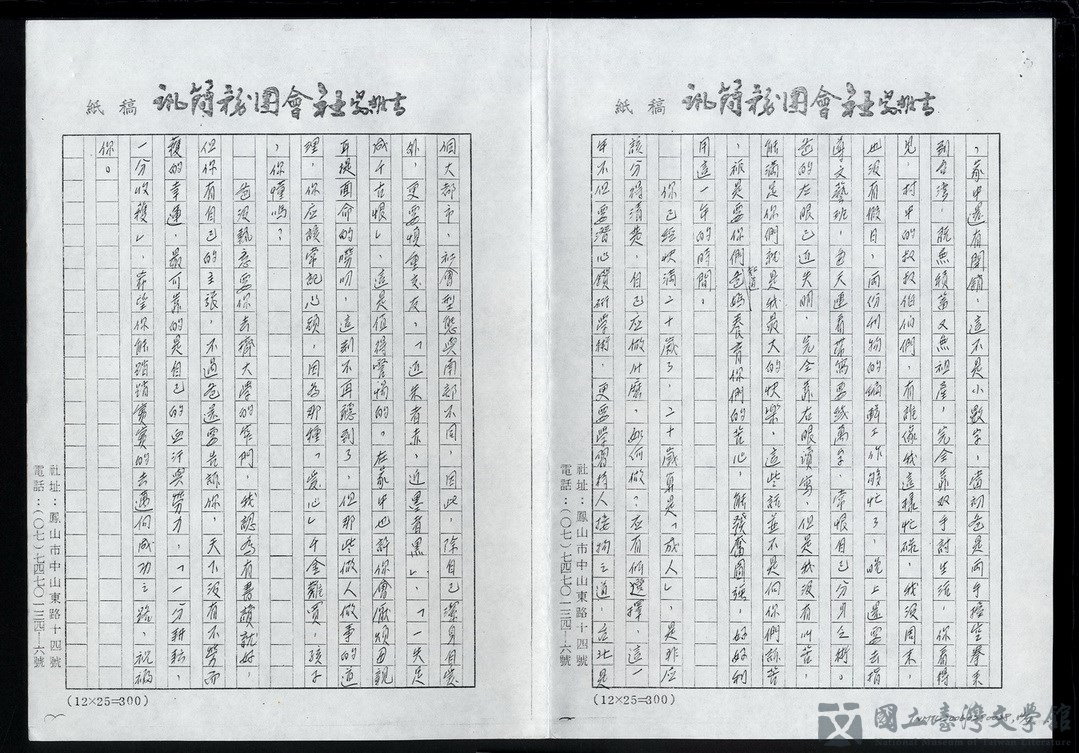 訊簡務團會社
紙稿
，家中還有開銷，這不是小數字，當初爸是兩手控空拳來
到台灣，既無積蓄又無祖產，完全靠双手討生活，你看得
見，村中的叔叔伯伯們，有誰像我這樣忙碌，我沒周末，
也沒有假日，兩份刊物的編輯工作夠忙了，晚上還要去指
導文藝班，每天還看
爸的左眼已近失明，完全靠右眼讀寫，但是我沒有叫苦，
能滿足你們就是我最大的快樂，這些話並不是向你們訴苦
，祇是要你們知道爸媽養育你們的苦心，能發奮圖強，好好利
用這一年的時間。
你已經快滿二十歲了，二十歲算是「成人」，是非应
該分得清楚，自己应做什麼，如何做？应有何選擇，這一
年不但要潛心鑽研學術，更要學習待人接物之道，台北是
社址：鳳山市中山東路十四號
電話：（〇七）七四七〇一三四—六號
(12×25=300)
訊簡務團會社
紙稿
個大都市，社會型態與南部不同，因此，除自己潔身自愛
外，更要慎重交友，「近朱者赤，近墨者黑」，「一失足
成千古恨」，這是值得警惕的。在家中也許你會厭煩母親
耳提面命的嘮叨，這刻不再聽到了，但那些做人做事的道
理，你应該常記心頭，因為那種「愛心」千金難買，孩子
，你懂嗎？
爸沒執意要你去擠大學的窄門，我認為有書讀就好，
但你有自己的主張，不過爸還要告訴你，天下沒有不勞而
穫的幸運，最可靠的是自己的血汗與勞力，「一分耕耘，
一分收穫」，希望你能踏踏實實的去邁向成功之路，祝福
你。
社址：鳳山市中山東路十四號
電話：（〇七）七四七〇一三四—六號
(12×25=300)
國立臺灣文學館
National Museum of Taiwan Literature